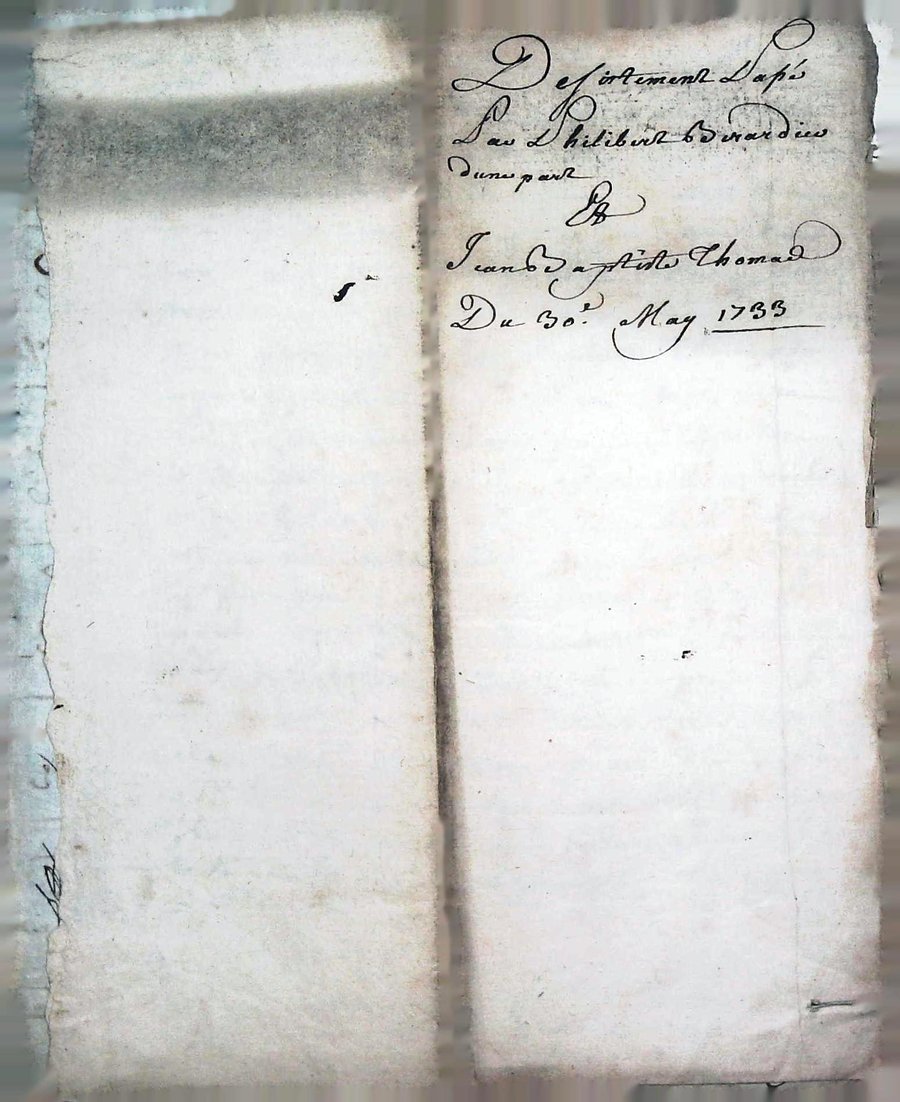 Desistement Passé
Par Philibert Berardier
dune part
Et
Jean Baptiste Thomas
Du 30.e May 1733